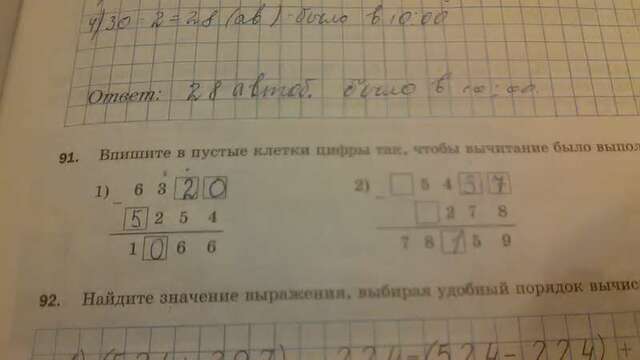 4) 30 - 2 = 28 (ав) - было в 10:00
Ответ: 28 автоб. было в
91. Впишите в пустые клетки цифры так, чтобы вычитание было выпол
1) 6 3 2 0 2) 5 4 3 7
- 5 2 5 4 - 2 7 8
1 0 6 6 7 8 1 5 9
92. Найдите значение выражения, выбирая удобный порядок вычис